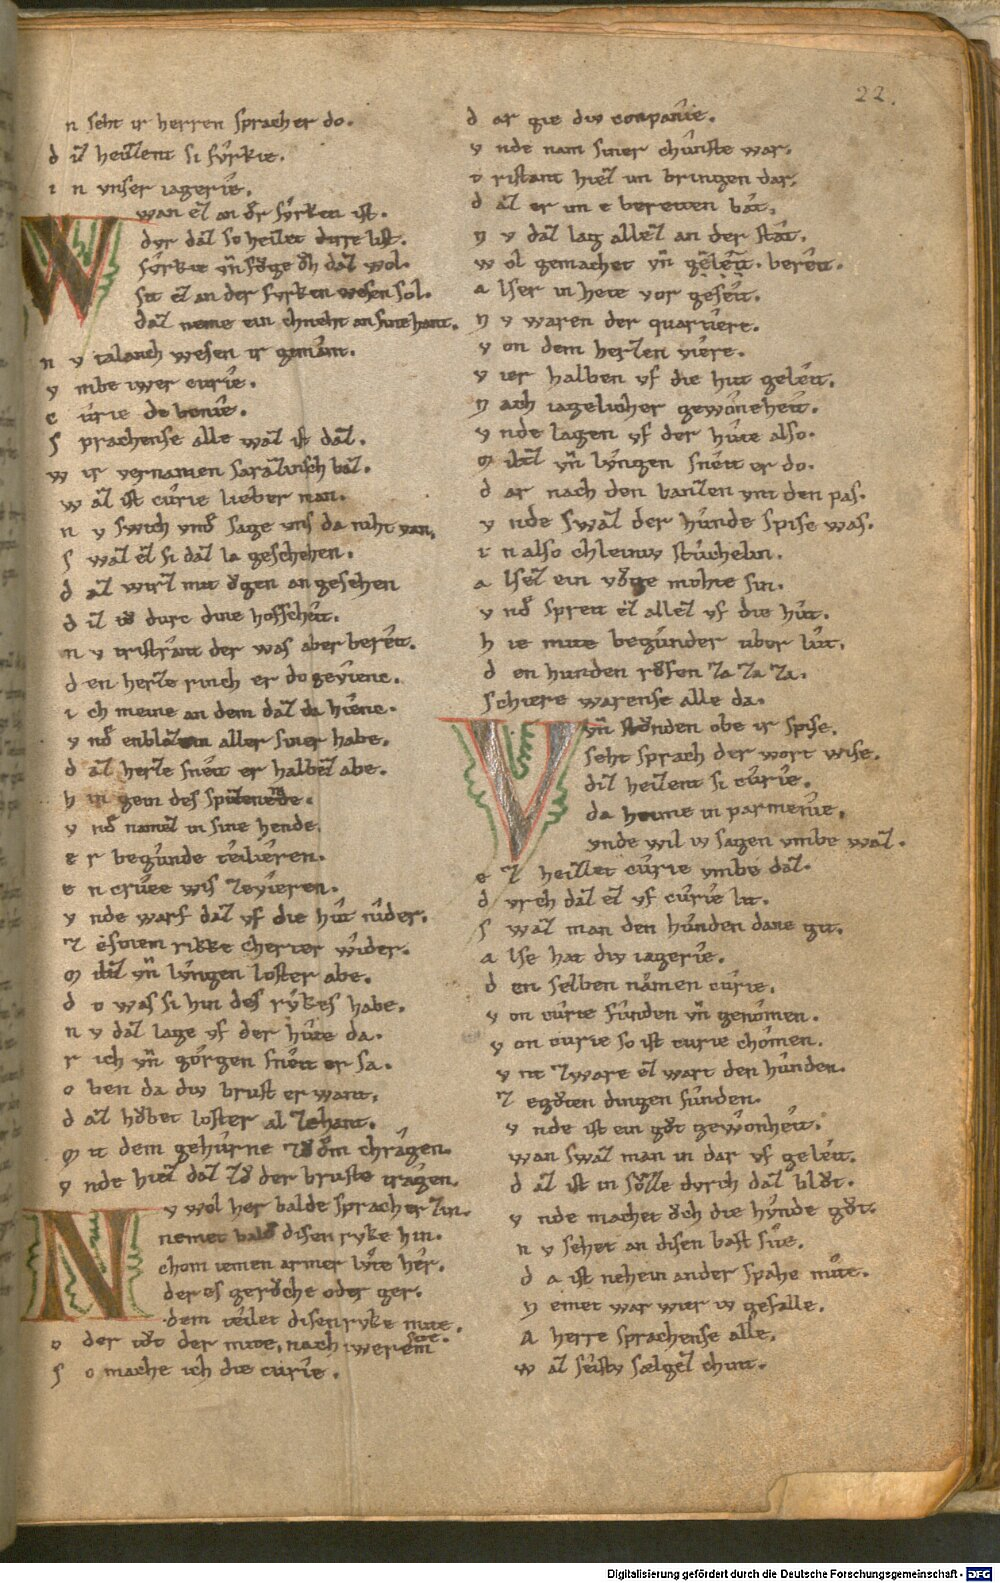 22.
n seht ir herren sprach er do.
d iz heizent si fûrkie.
i n vnser iagerîe.
Wan ez an dͤr fûrken ist.
dvr daz so heizet dirre list.
fûrkie vn̄ fôge ŏch daz wol.
sit ez an der furken wesen sol.
daz neme ein chneht an sine hant.
n v talanch wesen ir gemant.
v mbe iwer curîe.
c ûrie de benîe.
s prachense alle waz ist daz.
w ir vernamen sarazinsch baz.
w az ist cûrie lieber man.
n v swich vnd sage vns da niht van.
s waz ez si daz la geschehen.
d az wirz mit ŏgen an gesehen
d iz tŏ durc dine hofscheit.
n v tristrant der was aber bereît.
d en herze rinch er do gevienc.
i ch meine an dem daz da hîenc.
v nd enblazten aller siner habe.
d az herze sneit er halbez abe.
h in gein des spizen ende.
v nd namez in sine hende.
e r begunde teilieren.
e n crûce wis zevieren.
v nde warf daz vf die hût nider.
z esinem rikke cherter wider.
m ilz vn̄ lûngen loster abe.
d o was si hin des rykes habe.
n v daz lage vf der hûte da.
r ich vn̄ gorgen sneit er sa.
o ben da div brust er want.
d az hŏbet loster al zehant.
m it dem gehûrne zŏ dem chragen.
v nde hiez daz zŏ der bruste tragen.
Nv wol her balde sprach er zin.
nemet bald disen ryke hin.
chom iemen armer lŷte her.
der es gerŏche oder ger.
dem teilet disen ryke mite.
o der tŏt der mite, nach iwerem site.
s o mache ich die curîe.
d ar gie div conpanîe.
v nde nam siner chûnste war.
t ristant hiez im bringen dar.
d az er im e bereiten bat.
n v daz lag allez an der stat.
w ol gemachet vn̄ geleit. bereit.
a lser in hete vor geseit.
n v waren der quartîere.
v on dem herzen vîere.
v ier halben vf die hut geleit.
n ach iagelicher gewoneheit.
v nde lagen vf der hûte also.
m ilz vn̄ lûngen sneit er do.
d ar nach den banzen vnt den pas.
v nde swaz der hunde spise was.
i n also chleiniv stûchelin.
a lsez ein vŏge mohte sin.
v nd spreit ez allez vf die hût.
h ie mite begunder vber lût.
d en hunden rŏfen za za za.
schiere warense alle da.
Vn̄ stŏnden obe ir spise.
seht sprach der wort wise.
diz heizent si cûrie.
da heime in parmenîe.
vnde wil iv sagen vmbe waz.
e z heizzet cûrie vmbe daz.
d vrch daz ez vf curîe lit.
s waz man den hunden dane git.
a lse hat div iagerîe.
d en selben namen cûrie.
v on cûrie funden vn̄ genomen.
v on curie so ist curie chomen.
v nt zware ez wart den hunden.
z egŏten dingen funden.
v nde ist ein gŏt gewonheit.
wan swaz man in dar vf geleit.
d az ist in sŏzze dvrch daz blŏt.
v nde machet ŏch die hvnde gŏt.
n v sehet an disen bast site.
d a ist nehein ander spahe mite.
n emet war wier iv geualle.
A herre sprachense alle.
w az seistv sælgez chint.
Digitalisierung gefördert durch die Deutsche Forschungsgemeinschaft - DFG